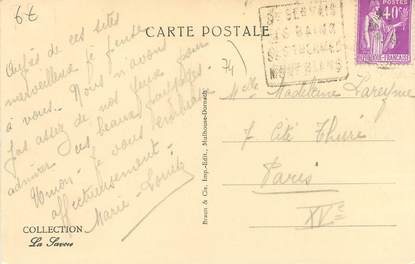 6€
CARTE POSTALE
ST GERVAIS
LES BAINS
SES THERMES
MONT BLANC
40c
POSTES
RÉPUBLIQUE FRANÇAISE
74
Auprès de ces sites
merveilleux je pense
à vous. Nous n'avons
pas assez de nos yeux pour
admirer ces beaux paysages.
Je vous embrasse
affectueusement.
Marie-Louise
Melle Madeleine Lareyne
7 Cité Thuré
Paris
XVe
Braun & Cie, Imp.-Edit., Mulhouse-Dornach
COLLECTION
La Savoie